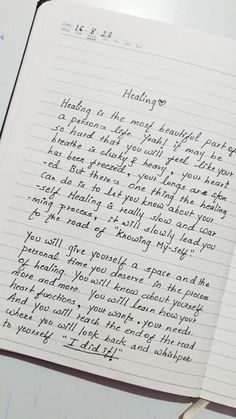 Date: 16.8.23
Healing ♡
Healing is the most beautiful part of
a person's life. Yeah! it may be
so hard that you will feel like your
breathe is dusky & heavy, your heart
has been freezed, your lungs are
-ed. But there's one thing the healing
can do is to let you know about your
-self. Healing is really slow and war
-ming process, it will slowly lead you
to the road of "Knowing My-self"
You will give yourself a space and the
personal time you deserve in the process
of healing. You will know about yourself
more and more. You will learn how your
heart functions, your wants, your needs.
And you will reach the end of the road
where you will look back and whishper
to yourself "I did it!"